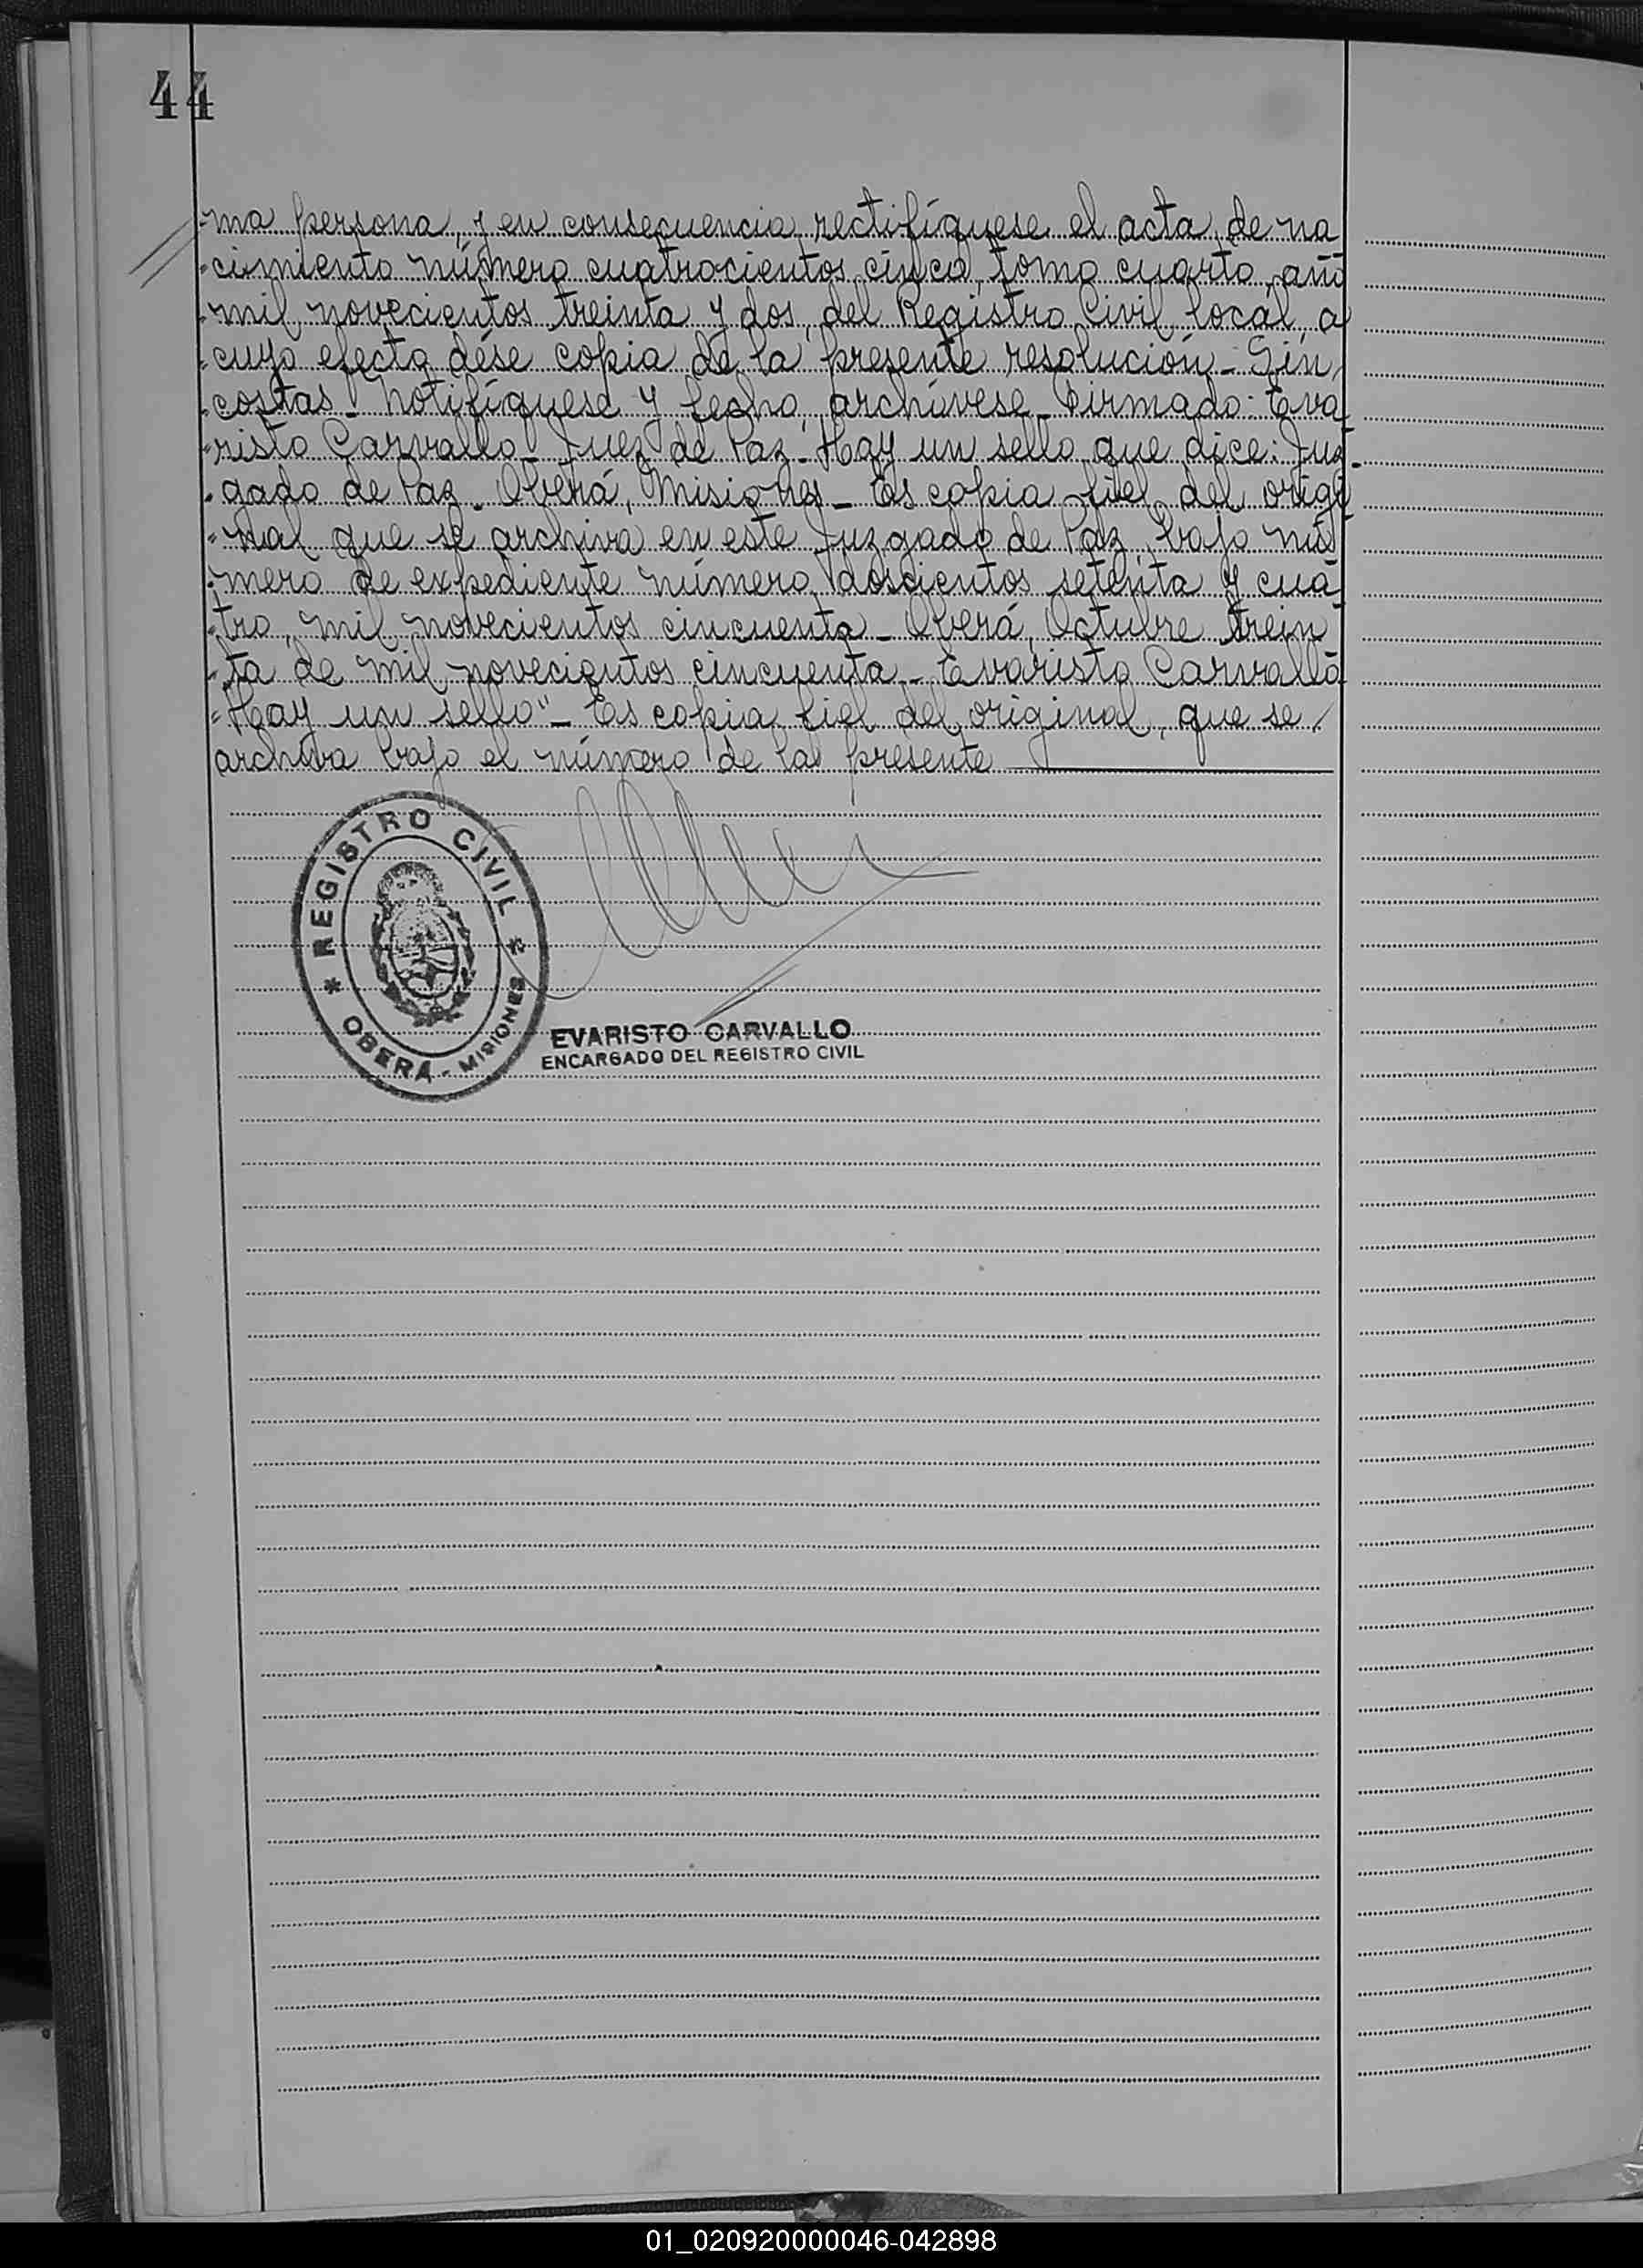 44
-ma persona, y en consecuencia, rectifíquese el acta de na
-cimiento número cuatrocientos cinco, tomo cuarto, año
-mil novecientos treinta y dos, del Registro Civil local, a
-cuyo efecto dése copia de la presente resolución - Sin
-costas - Notifíquese y fecho, archívese - Firmado: Eva
-risto Carvallo - Juez de Paz - Hay un sello que dice: Juz-
-gado de Paz - Oberá, Misiones - Es copia fiel del origi
-nal que se archiva en este Juzgado de Paz, bajo nú
-mero de expediente número doscientos setenta y cua
-tro, mil novecientos cincuenta - Oberá, Octubre trein
-ta de mil novecientos cincuenta - Evaristo Carvallo
-Hay un sello" - Es copia fiel del original, que se
archiva bajo el número de la presente
REGISTRO CIVIL
* OBERÁ - MISIONES *
EVARISTO CARVALLO
ENCARGADO DEL REGISTRO CIVIL
01_020920000046-042898